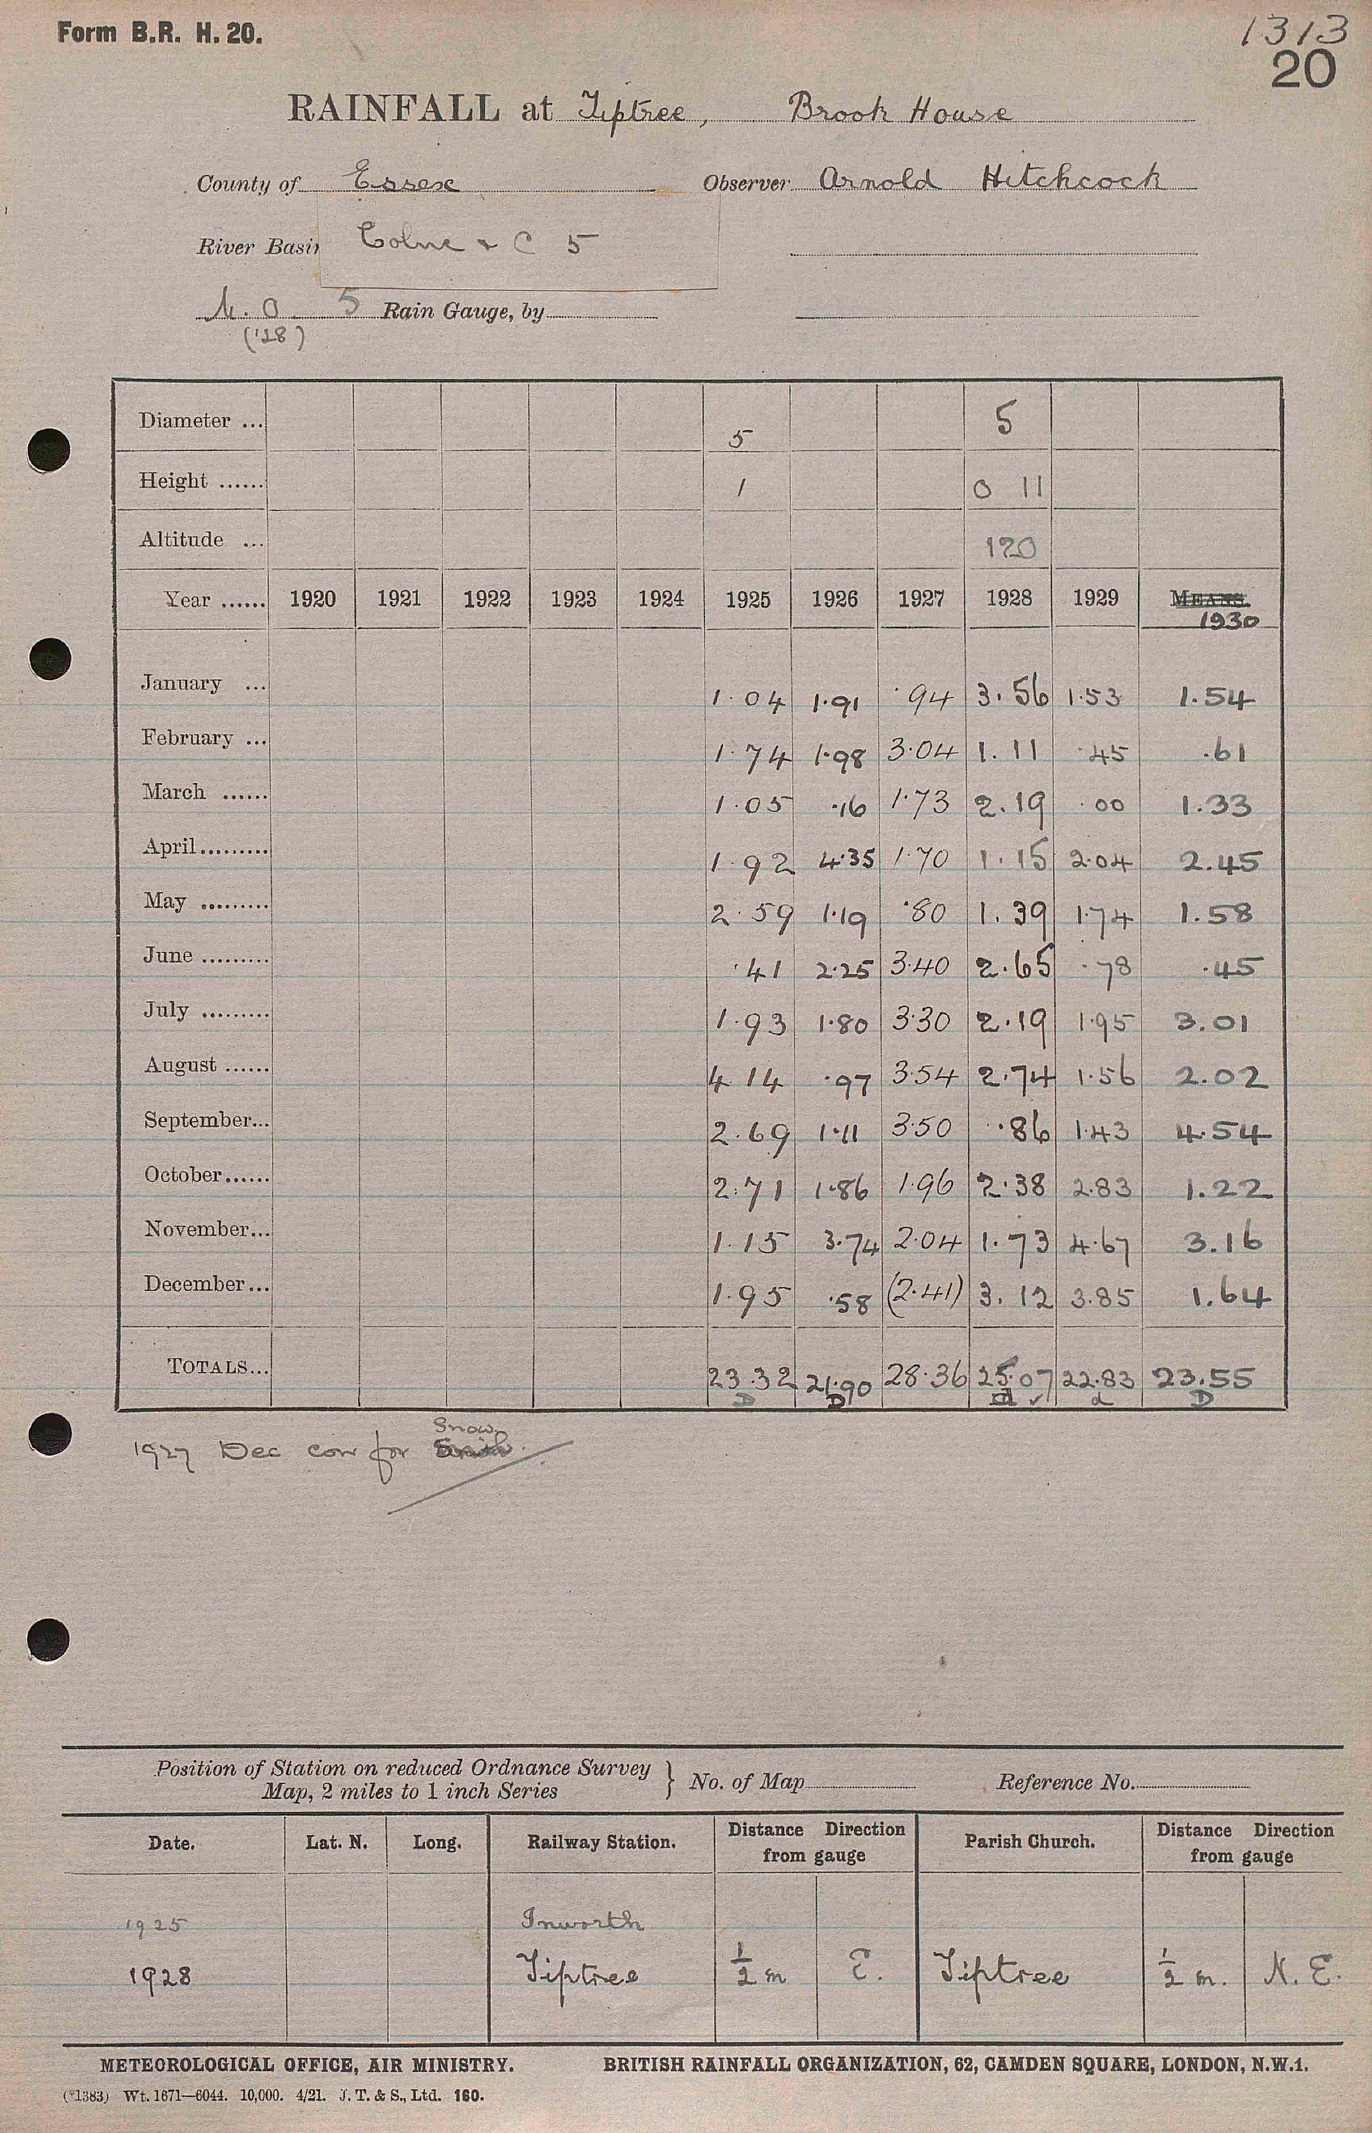 Form B.R. H. 20.
1313
20
RAINFALL at Tiptree, Brook House
County of Essex Observer Arnold Hitchcock
River Basin Colne & C 5
M.O. 5 Rain Gauge, by
('28)
Diameter ... 5 5
Height ...... 1 0 11
Altitude ... 120
Year ...... 1920 1921 1922 1923 1924 1925 1926 1927 1928 1929 MEANS.
1930
January ... 1.04 1.91 .94 3.56 1.53 1.54
February ... 1.74 1.98 3.04 1.11 .45 .61
March ...... 1.05 .16 1.73 2.19 .00 1.33
April......... 1.92 4.35 1.70 1.15 2.04 2.45
May ......... 2.59 1.19 .80 1.39 1.74 1.58
June ......... .41 2.25 3.40 2.65 .78 .45
July ......... 1.93 1.80 3.30 2.19 1.95 3.01
August ...... 4.14 .97 3.54 2.74 1.56 2.02
September... 2.69 1.11 3.50 .86 1.43 4.54
October...... 2.71 1.86 1.96 2.38 2.83 1.22
November... 1.15 3.74 2.04 1.73 4.67 3.16
December... 1.95 .58 (2.41) 3.12 3.85 1.64
TOTALS... 23.32 21.90 28.36 25.07 22.83 23.55
D D d ✓ d D
Snow
1927 Dec corr for
Position of Station on reduced Ordnance Survey
Map, 2 miles to 1 inch Series } No. of Map Reference No.
Date. Lat. N. Long. Railway Station. Distance Direction from gauge Parish Church. Distance Direction from gauge
1925 Inworth
1928 Tiptree 1/2 m E. Tiptree 1/2 m. N. E.
METEOROLOGICAL OFFICE, AIR MINISTRY. BRITISH RAINFALL ORGANIZATION, 62, CAMDEN SQUARE, LONDON, N.W.1.
(*1383) Wt. 1671—6044. 10,000. 4/21. J. T. & S., Ltd. 160.